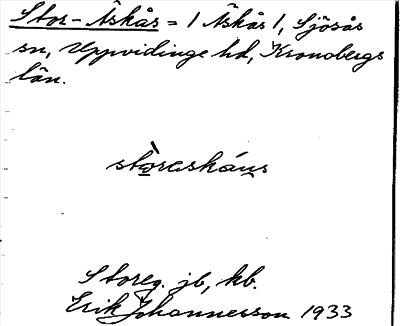 Stor-Åskås = / Åskås /, Sjösås
sn, Uppvidinge hd, Kronobergs
län.
Storeg. jb, kb.
Erik Johannesson 1933